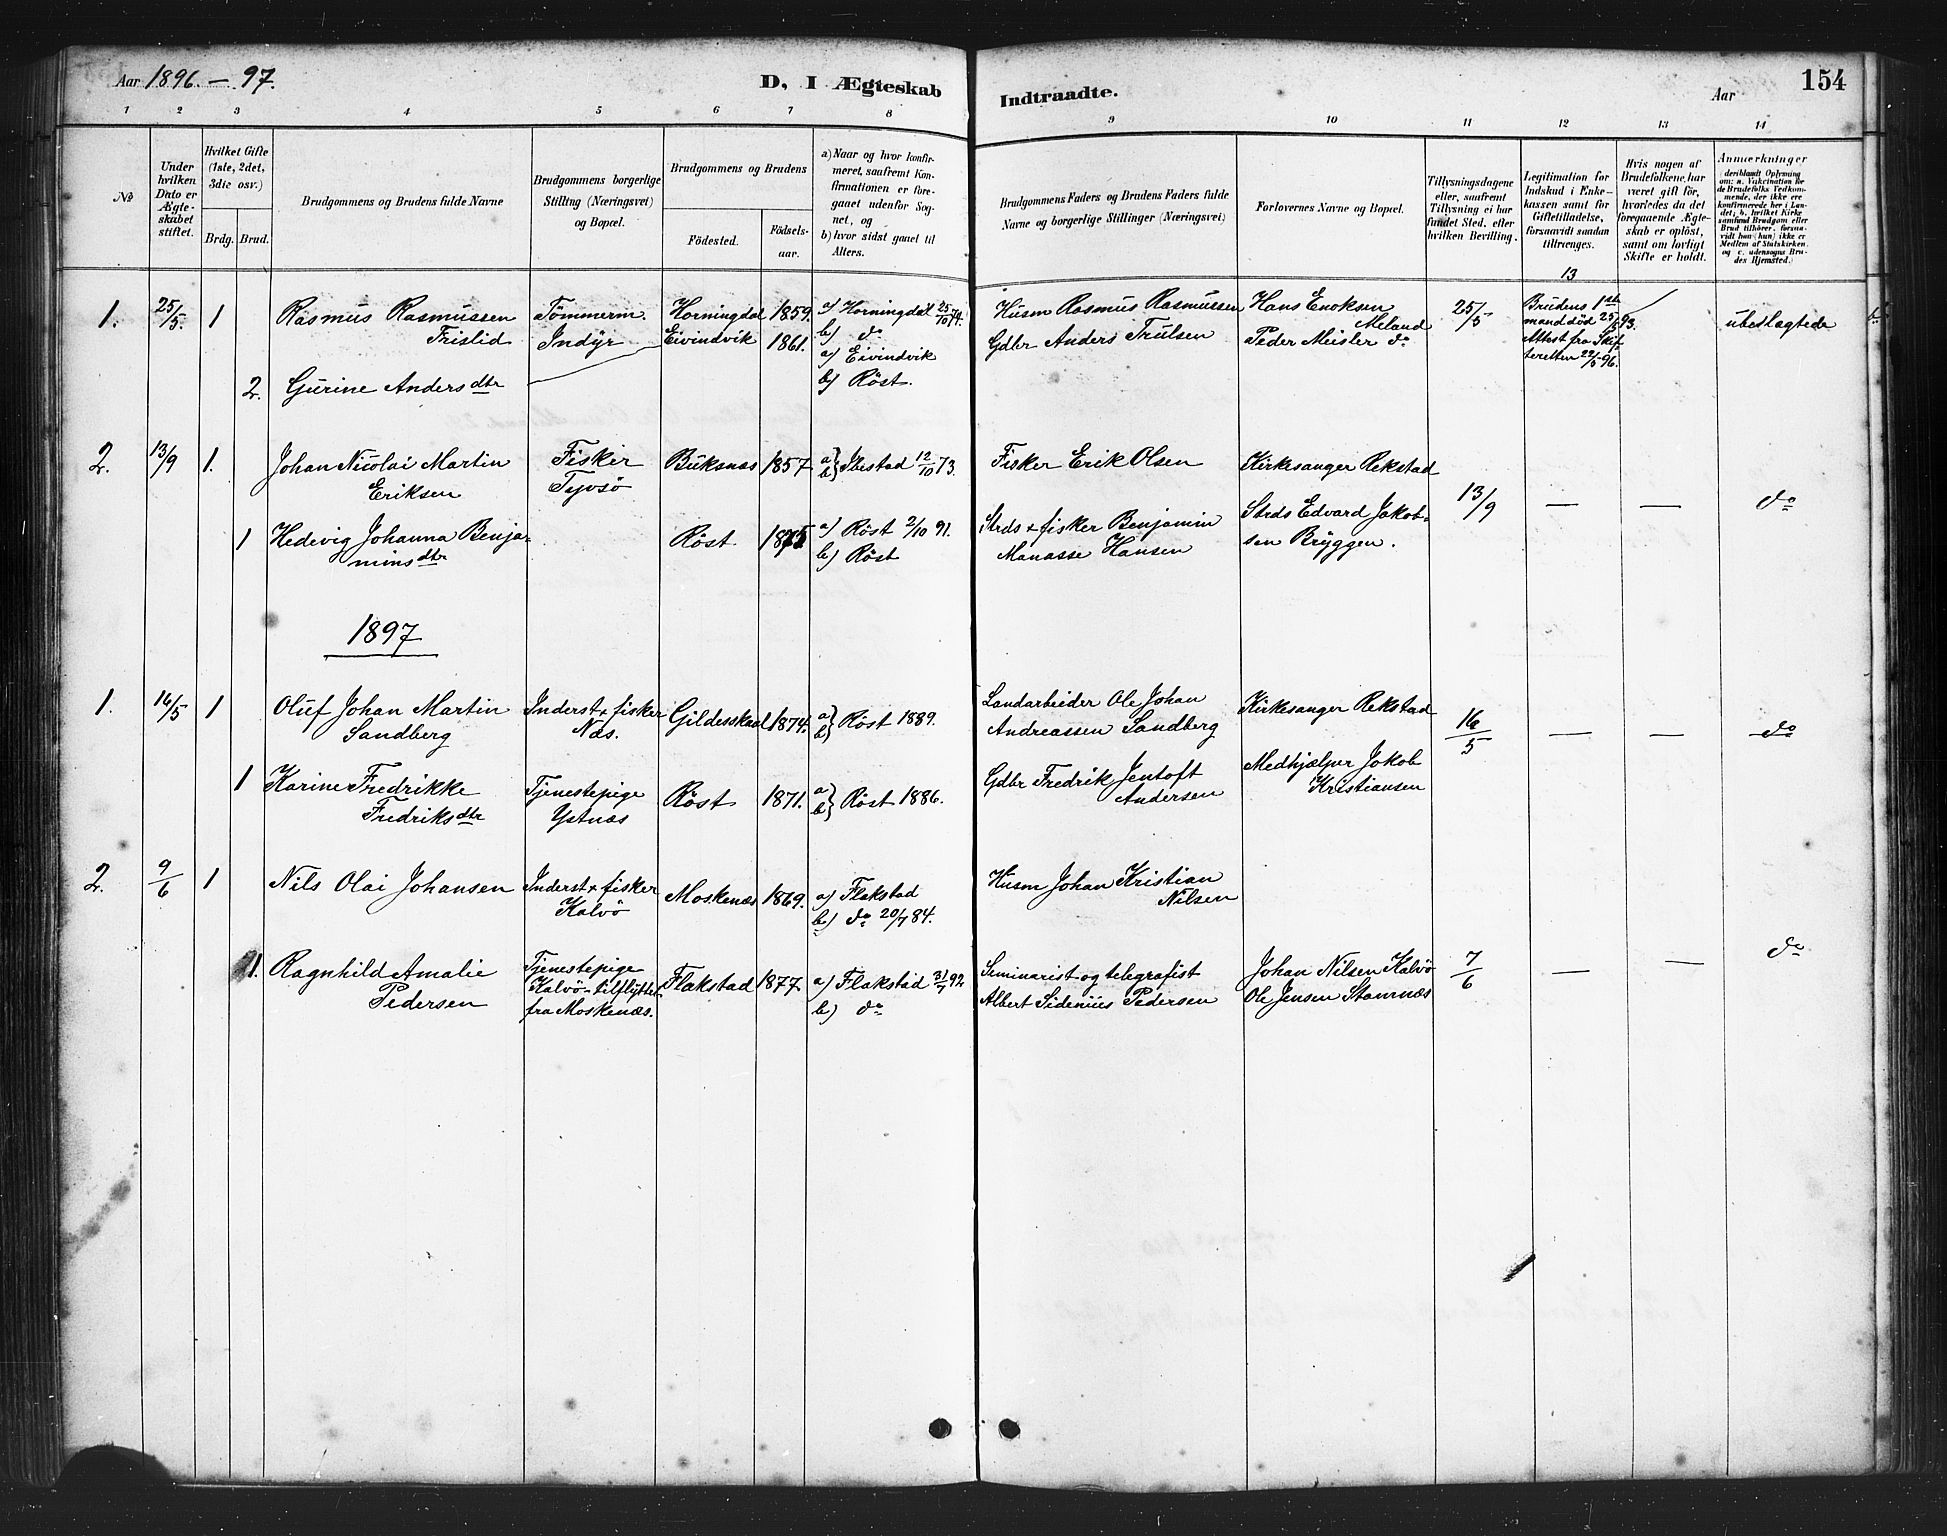 Aar 1896.—97.
D, I Ægteskab
Indtraadte.
Aar
154
1 2 3 4 5 6 7 8 9 10 11 12 13 14
№
Under hvilken Dato er Ægteskabet stiftet.
Hvilket Gifte (1ste, 2det, 3die osv.)
Brdg. Brud.
Brudgommens og Brudens fulde Navne
Brudgommens borgerlige Stilling (Næringsvei) og Bopæl.
Brudgommens og Brudens
Födested.
Födselsaar.
a) Naar og hvor konfirmeret, saafremt Konfirmationen er foregaaet udenfor Sognet, og
b) hvor sidst gaaet til Alters.
Brudgommens Faders og Brudens Faders fulde Navne og borgerlige Stillinger (Næringsvei)
Forlovernes Navne og Bopæl.
Tillysningsdagene eller, saafremt Tillysning ei har fundet Sted, efter hvilken Bevilling.
Legitimation for Indskud i Enkekassen samt for Giftetilladelse, forsaavidt saadan tiltrænges.
Hvis nogen af Brudefolkene har været gift för, hvorledes da det foregaaende Ægteskab er oplöst, samt om lovligt Skifte er holdt.
Anmærkninger
deriblandt Oplysning om: a. Vakcination for de Brudefolks Vedkommende, der ikke ere konfirmerede her i Landet; b. hvilket Kirkesamfund Brudgom eller Brud tilhörer, forsaavidt han (hun) ikke er Medlem af Statskirken, og c. udensogns Brudes Hjemsted.)
13
1. 25/5. 1 Rasmus Rasmussen Frislid
Tömmerm. Indyr
Horningdal 1859.
a) Horningdal 25/10 74.
b) do
Husm Rasmus Rasmussen
Hans Enoksen Meland
25/5
Brudens 1ste mand död 25/5 93. Attest fra Skifteretten 22/5 96.
ubeslægtede
2. Gurine Andersdtr
Eivindvik 1861.
a) Eivindvik
b) Röst.
Gdbr Anders Trulsen
Peder Meisler do
2. 13/9 1. Johan Nicolai Martin Eriksen
Fisker Tyvsö
Buksnæs 1857
a) b) Ibestad 12/10 73.
Fisker Erik Olsen
Kirkesanger Rekstad
13/9 — — do
1 Hedevig Johanna Benjaminsdtr
Röst 1875
a) Röst 2/10 91.
b) Röst
Strds + fisker Benjamin Manasse Hansen
Strds Edvard Jakobsen Bryggen.
1897
1. 16/5 1 Oluf Johan Martin Sandberg
Inderst + fisker Næs.
Gildesskaal 1874.
a) b) Röst 1889.
Landarbeider Ole Johan Andreassen Sandberg
Kirkesanger Rekstad
16/5 — — do
1 Karine Fredrikke Fredriksdtr
Tjenestepige Ystnæs
Röst 1871.
a) b) Röst 1886.
Gdbr Fredrik Jentoft Andersen
Medhjælper Jakob Kristiansen
2. 9/6 1 Nils Olai Johansen
Inderst + fisker Kalvö
Moskenæs 1869.
a) Flakstad
b) do 20/7 84.
Husm Johan Kristian Nilsen
1. Ragnhild Amalie Pedersen
Tjenestepige Kalvö - tilflyttet fra Moskenæs.
Flakstad 1877
a) Flakstad 31/7 92
b) do
Seminarist og telegrafist Albert Sidenius Pedersen
Johan Nilsen Kalvö
Ole Jensen Stamnæs
7/6 — — do